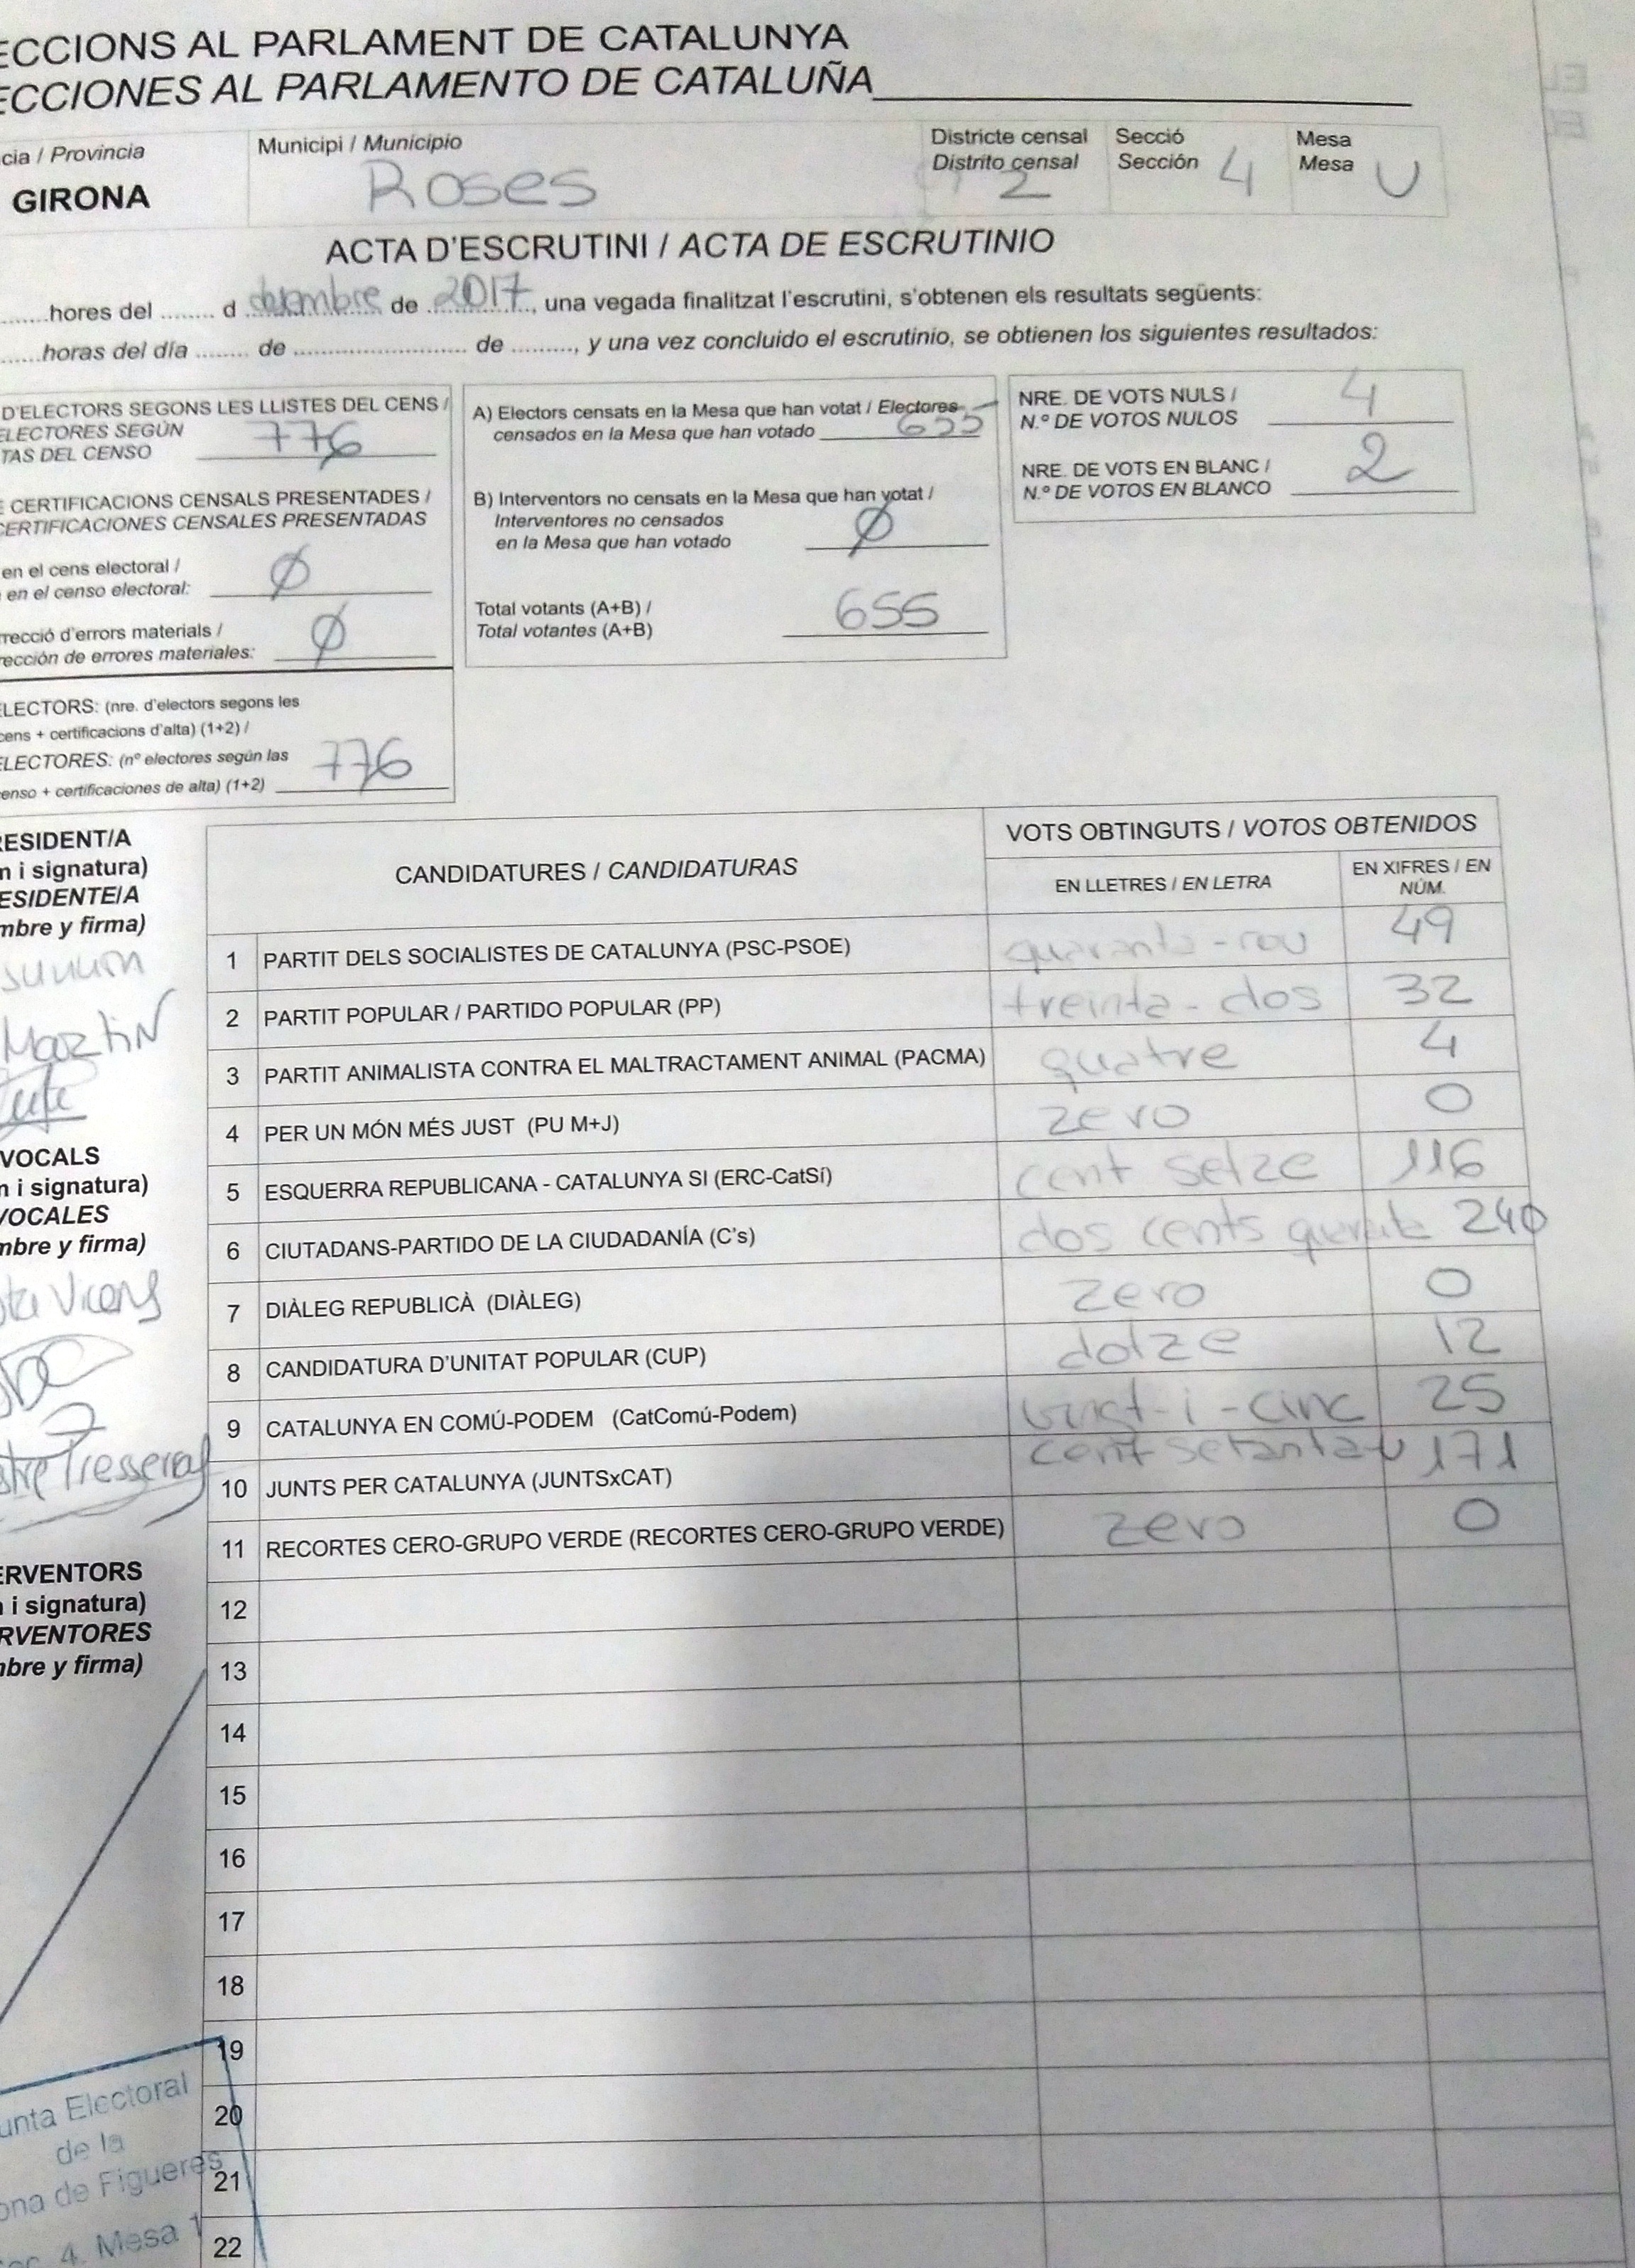 ECCIONS AL PARLAMENT DE CATALUNYA
ECCIONES AL PARLAMENTO DE CATALUÑA
cia / Provincia
GIRONA
Municipi / Municipio
Roses
Districte censal
Distrito censal
2
Secció
Sección 4
Mesa
Mesa U
ACTA D'ESCRUTINI / ACTA DE ESCRUTINIO
hores del ........ d desembre de 2017, una vegada finalitzat l'escrutini, s'obtenen els resultats següents:
horas del día ........ de .......................... de ........., y una vez concluido el escrutinio, se obtienen los siguientes resultados:
D'ELECTORS SEGONS LES LLISTES DEL CENS /
ELECTORES SEGÚN
TAS DEL CENSO 776
E CERTIFICACIONS CENSALS PRESENTADES /
CERTIFICACIONES CENSALES PRESENTADAS
en el cens electoral /
en el censo electoral: Ø
rrecció d'errors materials /
rección de errores materiales: Ø
ELECTORS: (nre. d'electors segons les
cens + certificacions d'alta) (1+2) /
ELECTORES: (nº electores según las
enso + certificaciones de alta) (1+2) 776
A) Electors censats en la Mesa que han votat / Electores
censados en la Mesa que han votado 655
B) Interventors no censats en la Mesa que han votat /
Interventores no censados
en la Mesa que han votado Ø
Total votants (A+B) /
Total votantes (A+B) 655
NRE. DE VOTS NULS /
N.º DE VOTOS NULOS 4
NRE. DE VOTS EN BLANC /
N.º DE VOTOS EN BLANCO 2
RESIDENT/A
n i signatura)
ESIDENTE/A
mbre y firma)
MartiN
VOCALS
n i signatura)
VOCALES
mbre y firma)
Vicens
Tresserras
ERVENTORS
n i signatura)
RVENTORES
mbre y firma)
CANDIDATURES / CANDIDATURAS
VOTS OBTINGUTS / VOTOS OBTENIDOS
EN LLETRES / EN LETRA
EN XIFRES / EN
NÚM.
1 PARTIT DELS SOCIALISTES DE CATALUNYA (PSC-PSOE) quaranta-nou 49
2 PARTIT POPULAR / PARTIDO POPULAR (PP) treinta-dos 32
3 PARTIT ANIMALISTA CONTRA EL MALTRACTAMENT ANIMAL (PACMA) quatre 4
4 PER UN MÓN MÉS JUST (PU M+J) zero 0
5 ESQUERRA REPUBLICANA - CATALUNYA SI (ERC-CatSí) cent setze 116
6 CIUTADANS-PARTIDO DE LA CIUDADANÍA (C's) dos cents 240
7 DIÀLEG REPUBLICÀ (DIÀLEG) zero 0
8 CANDIDATURA D'UNITAT POPULAR (CUP) dotze 12
9 CATALUNYA EN COMÚ-PODEM (CatComú-Podem) vint-i-cinc 25
10 JUNTS PER CATALUNYA (JUNTSxCAT) cent setanta-u 171
11 RECORTES CERO-GRUPO VERDE (RECORTES CERO-GRUPO VERDE) zero 0
12
13
14
15
16
17
18
19
20
21
22
unta Electoral
de la
ona de Figueres
4. Mesa 1